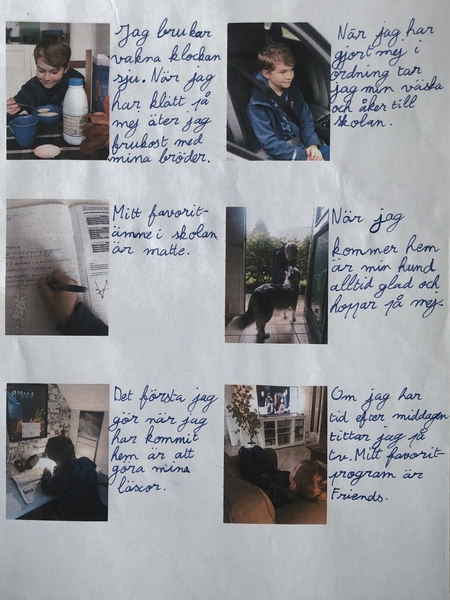 Jag brukar
vakna klockan
sju. När jag
har klätt på
mej äter jag
frukost med
mina bröder.
När jag har
gjort mej i
ordning tar
jag min väska
och åker till
skolan.
Mitt favorit-
ämne i skolan
är matte.
När jag
kommer hem
är min hund
alltid glad och
hoppar på mej.
Det första jag
gör när jag
har kommit
hem är att
göra mina
läxor.
Om jag har
tid efter middagen
tittar jag på
tv. Mitt favorit-
program är
Friends.